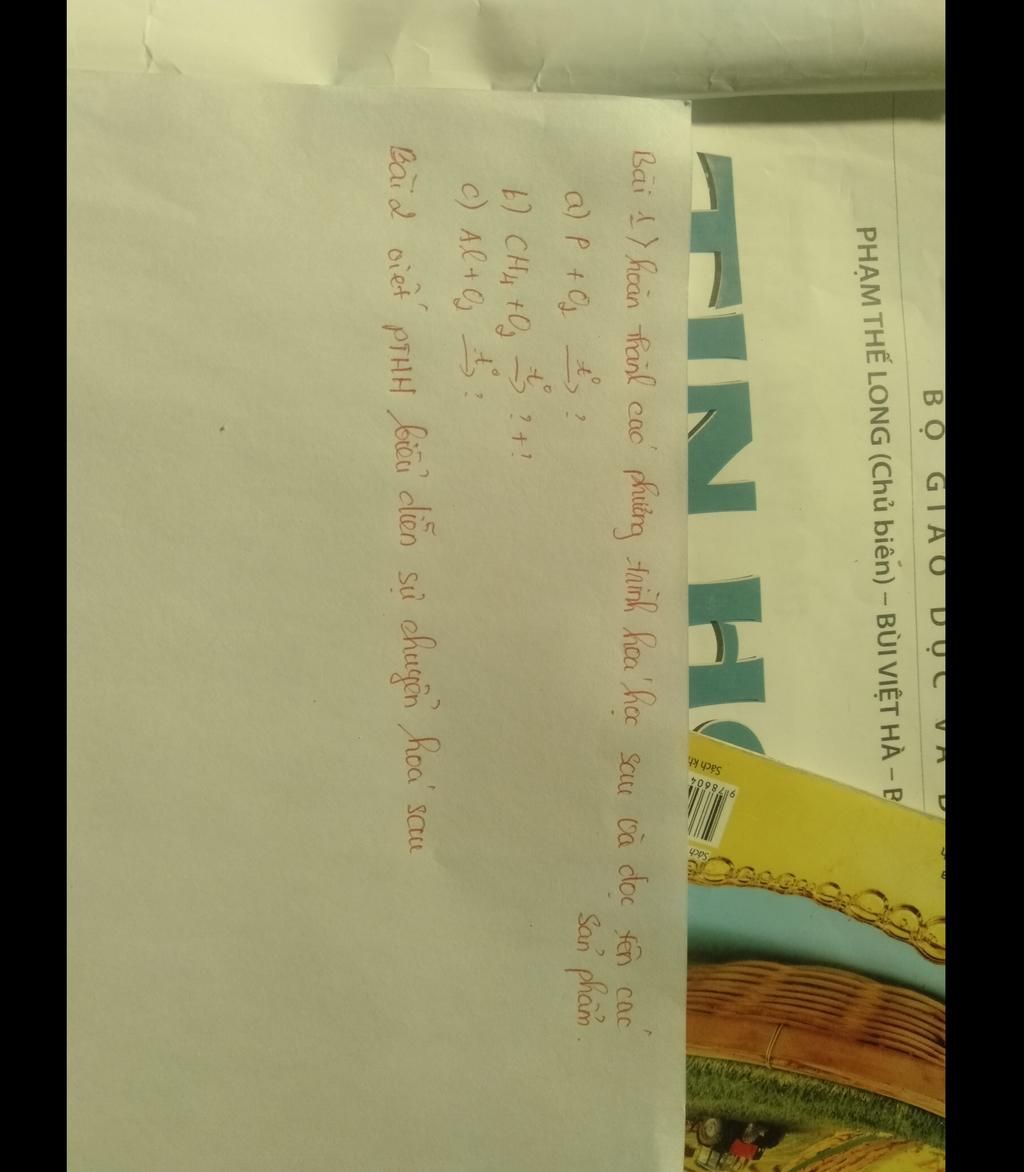 BỘ GIÁO DỤC VÀ
PHẠM THẾ LONG (Chủ biên) – BÙI VIỆT HÀ – B
TIN H
Sách kh
978604
Sách
Bài 1) hoàn thành các phương trình hoá học sau và đọc tên các
sản phẩm.
a) P + O₂ t°→ ?
b) CH₄ + O₂ t°→ ? + ?
c) Al + O₂ t°→ ?
Bài 2 viết PTHH biểu diễn sự chuyển hoá sau